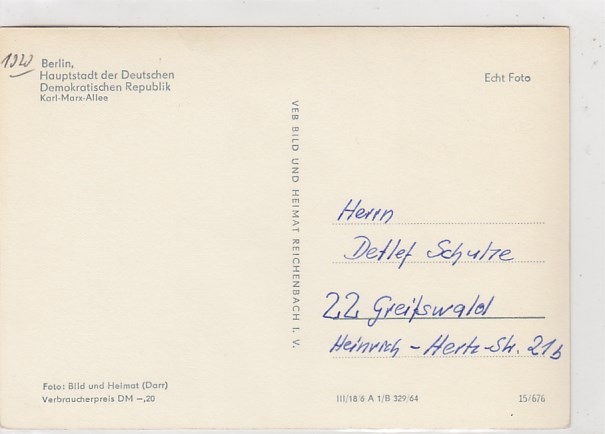 1020
Berlin,
Hauptstadt der Deutschen
Demokratischen Republik
Karl-Marx-Allee
Echt Foto
VEB BILD UND HEIMAT REICHENBACH I. V.
Herrn
Detlef Schulze
22 Greifswald
Heinrich-Hertz-Str. 21b
Foto: Bild und Heimat (Darr)
Verbraucherpreis DM –,20
III/18/6 A 1/B 329/64
15/676